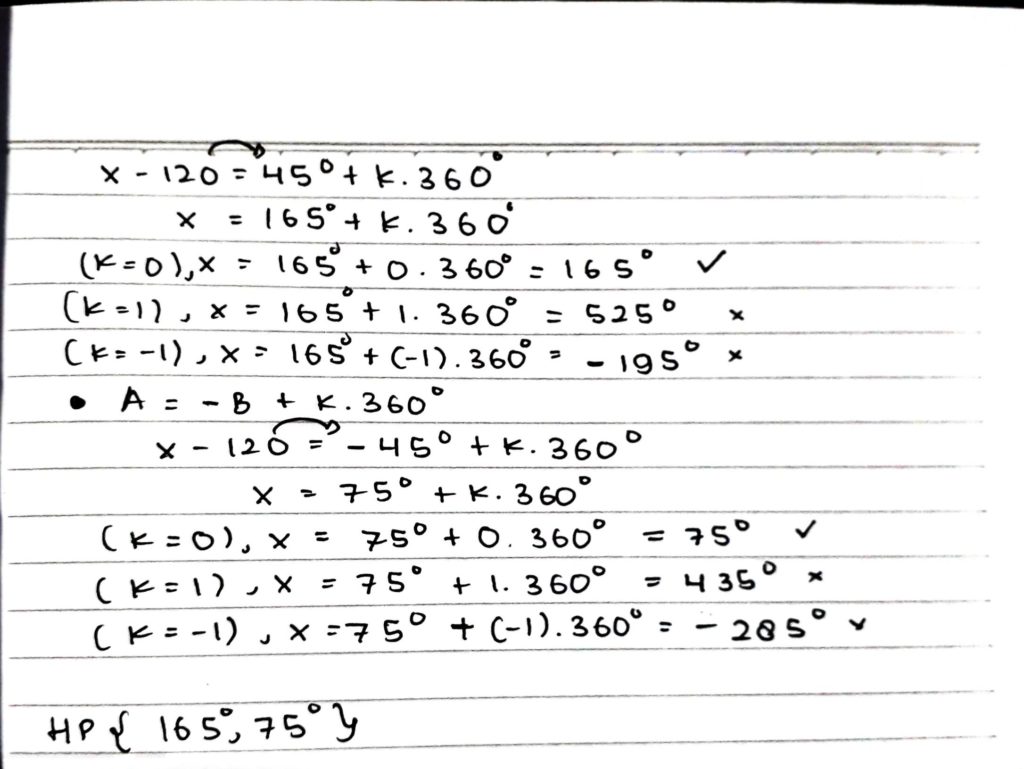 x - 120 = 45° + k. 360°
x = 165° + k. 360°
(k=0), x = 165° + 0. 360° = 165° ✓
(k=1), x = 165° + 1. 360° = 525° ×
(k=-1), x = 165° + (-1). 360° = -195° ×
• A = -B + k. 360°
x - 120 = -45° + k. 360°
x = 75° + k. 360°
(k=0), x = 75° + 0. 360° = 75° ✓
(k=1), x = 75° + 1. 360° = 435° ×
(k=-1), x = 75° + (-1). 360° = -285° ×
HP { 165°, 75° }